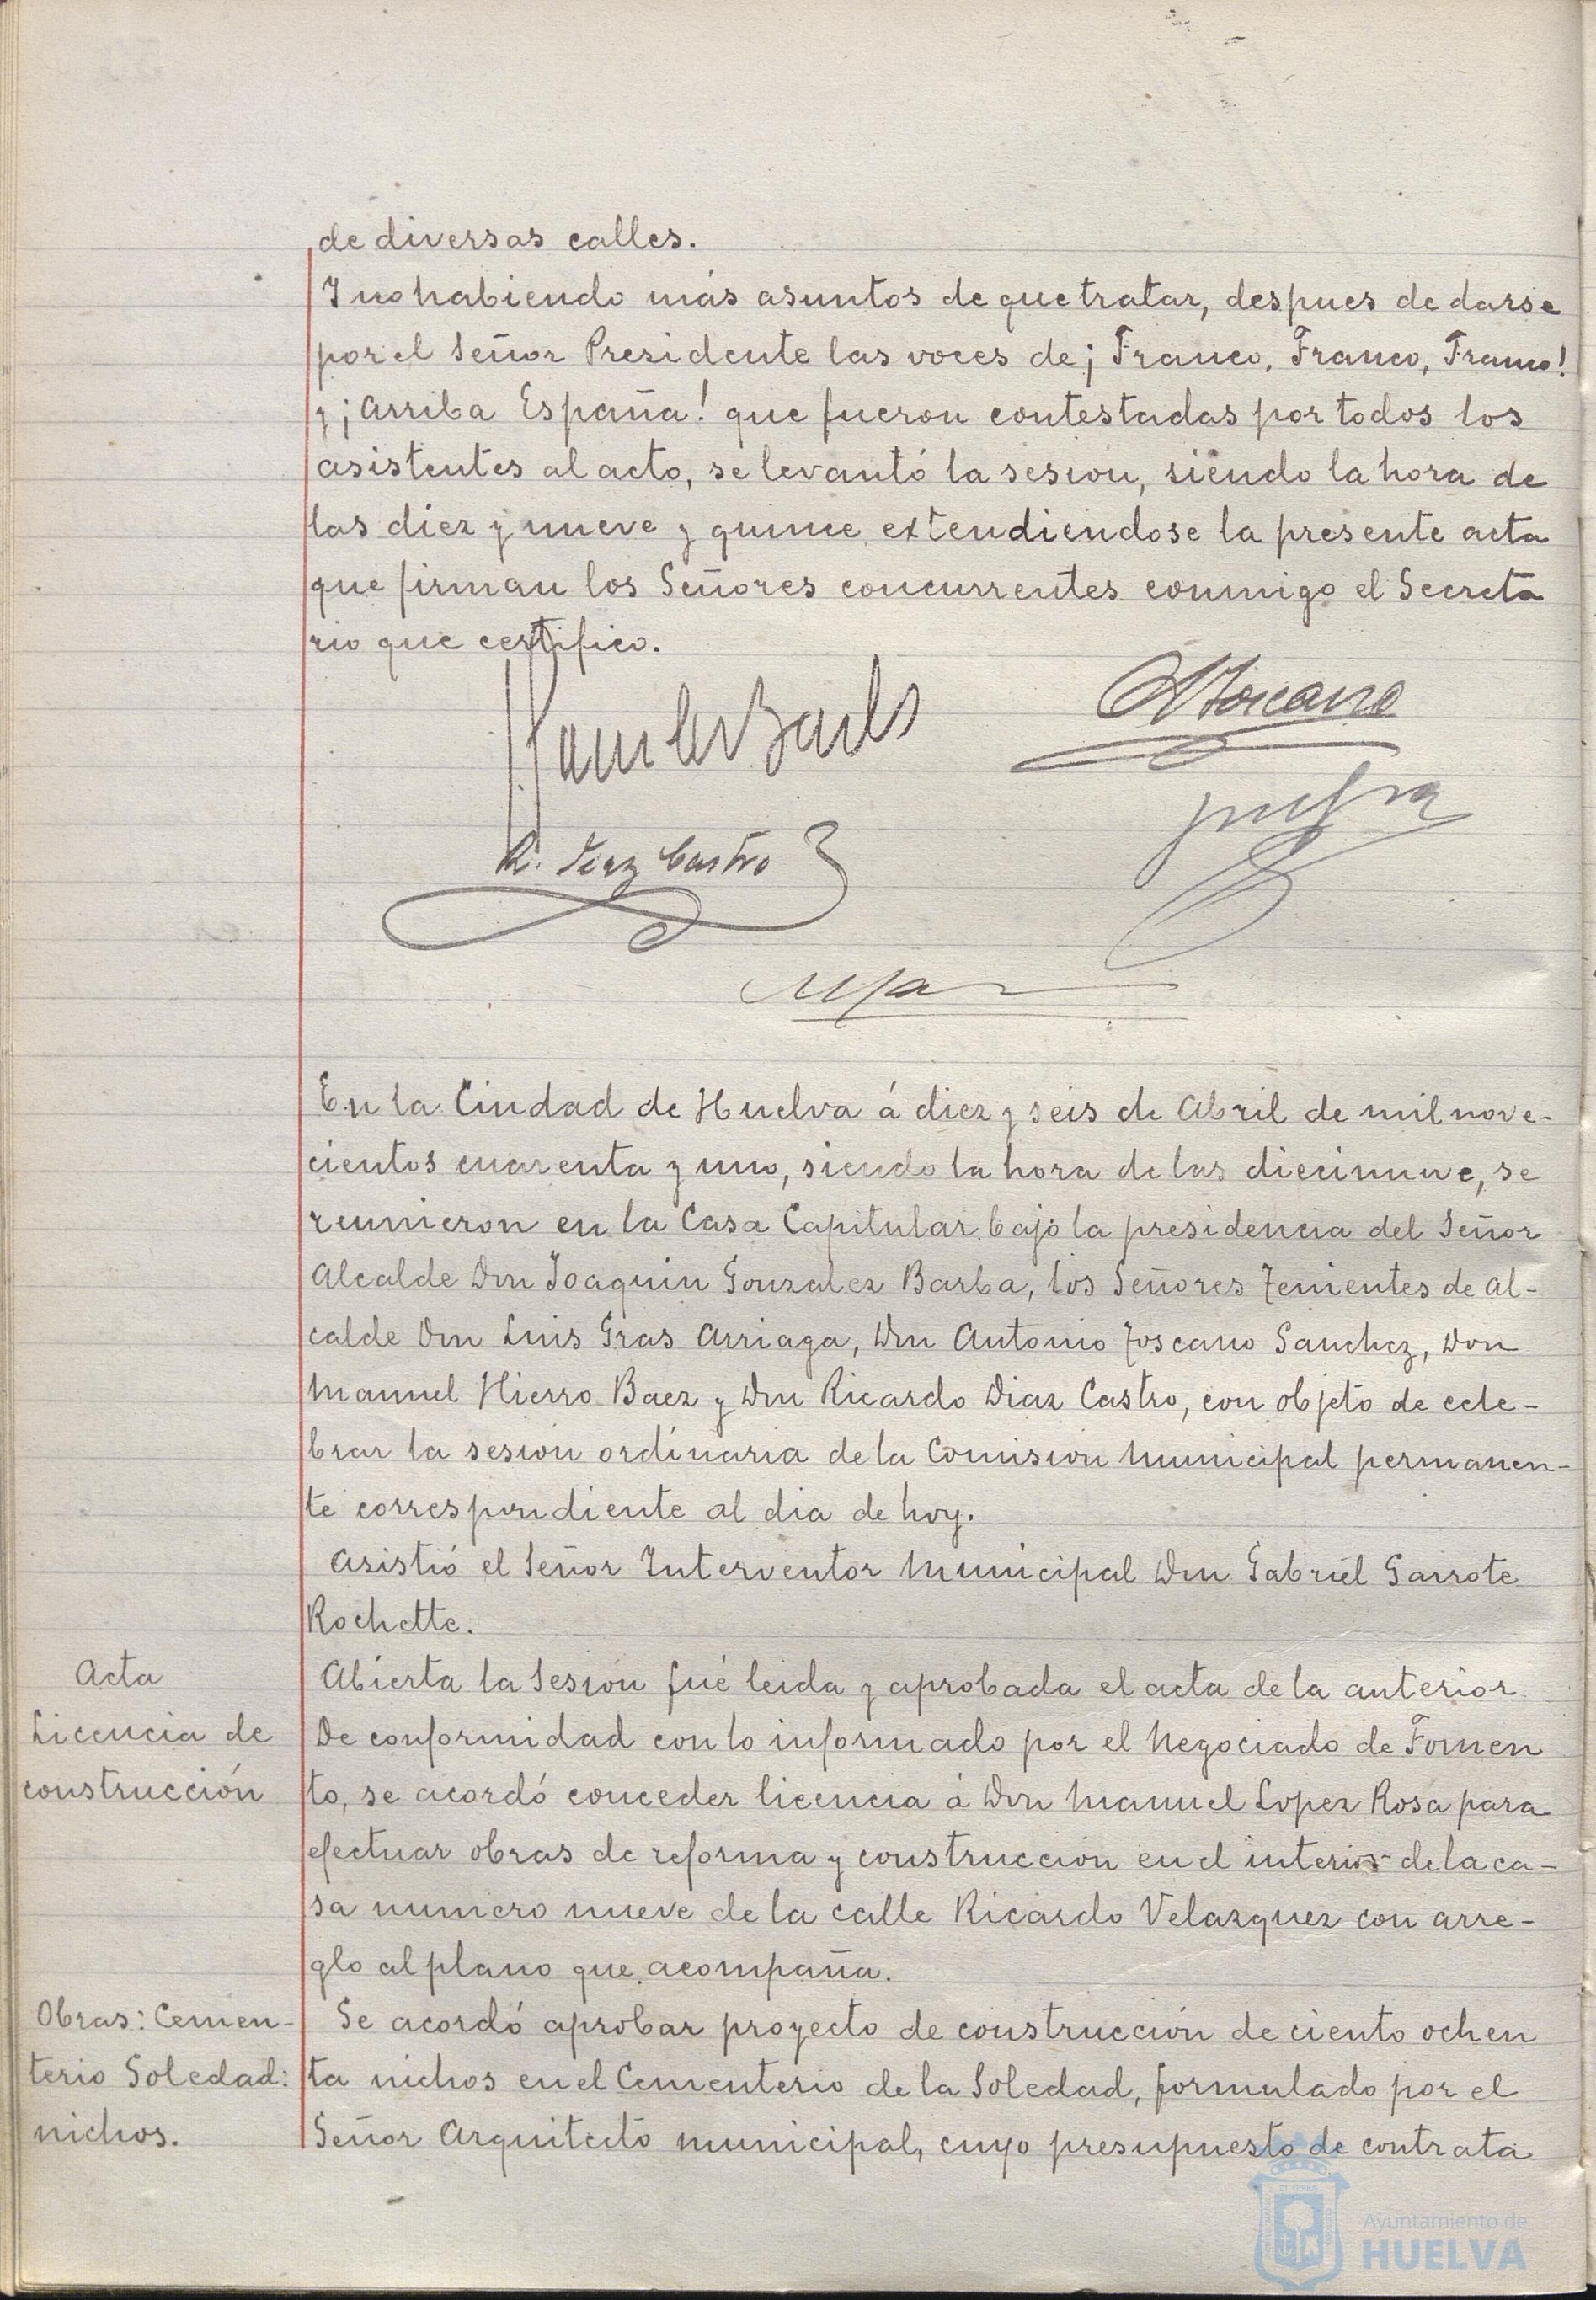 de diversas calles.
Y no habiendo más asuntos de que tratar, despues de darse
por el Señor Presidente las voces de ¡Franco, Franco, Franco!
y ¡Arriba España! que fueron contestadas por todos los
asistentes al acto, se levantó la sesion, siendo la hora de
las diez y nueve y quince extendiendose la presente acta
que firman los Señores concurrentes conmigo el Secreta
rio que certifico.
A Toscano
R. Diaz Castro
En la Ciudad de Huelva á diez y seis de Abril de mil nove-
cientos cuarenta y uno, siendo la hora de las diecinueve, se
reunieron en la Casa Capitular bajo la presidencia del Señor
Alcalde Don Joaquin Gonzalez Barba, los Señores Tenientes de Al-
calde Don Luis Gras Arriaga, Don Antonio Toscano Sanchez, Don
Manuel Hierro Baez y Don Ricardo Diaz Castro, con objeto de cele-
brar la sesión ordinaria de la Comision Municipal permanen-
te correspondiente al dia de hoy.
Asistió el Señor Interventor Municipal Don Gabriel Garrote
Rochette.
Acta
Abierta la Sesión fué leida y aprobada el acta de la anterior
Licencia de
De conformidad con lo informado por el Negociado de Fomen
construcción
to, se acordó conceder licencia á Don Manuel Lopez Rosa para
efectuar obras de reforma y construcción en el interior de la ca-
sa numero nueve de la calle Ricardo Velazquez con arre-
glo al plano que acompaña.
Obras: Cemen-
Se acordó aprobar proyecto de construcción de ciento ochen
terio Soledad:
ta nichos en el Cementerio de la Soledad, formulado por el
nichos.
Señor Arquitecto municipal, cuyo presupuesto de contrata
Ayuntamiento de
HUELVA